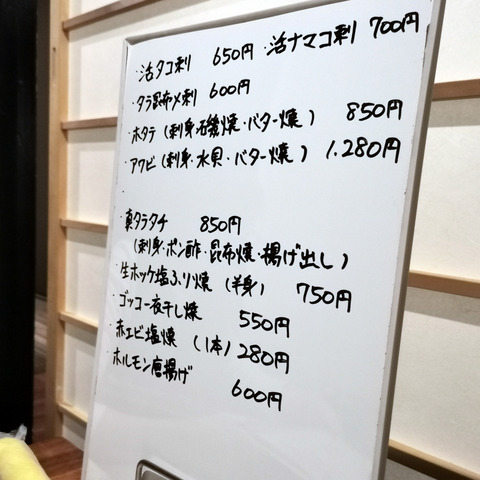 ・活タコ刺 650円 ・活ナマコ刺 700円
・タラ昆布〆刺 600円
・ホタテ(刺身・磯焼・バター焼) 850円
・アワビ(刺身・水貝・バター焼) 1.280円
・
・真タラタチ 850円
(刺身・ポン酢・昆布焼・揚げ出し)
・生ホッケ塩ふり焼(半身) 750円
・ゴッコ一夜干し焼 550円
・赤エビ塩焼(1本) 280円
・ホルモン唐揚げ 600円